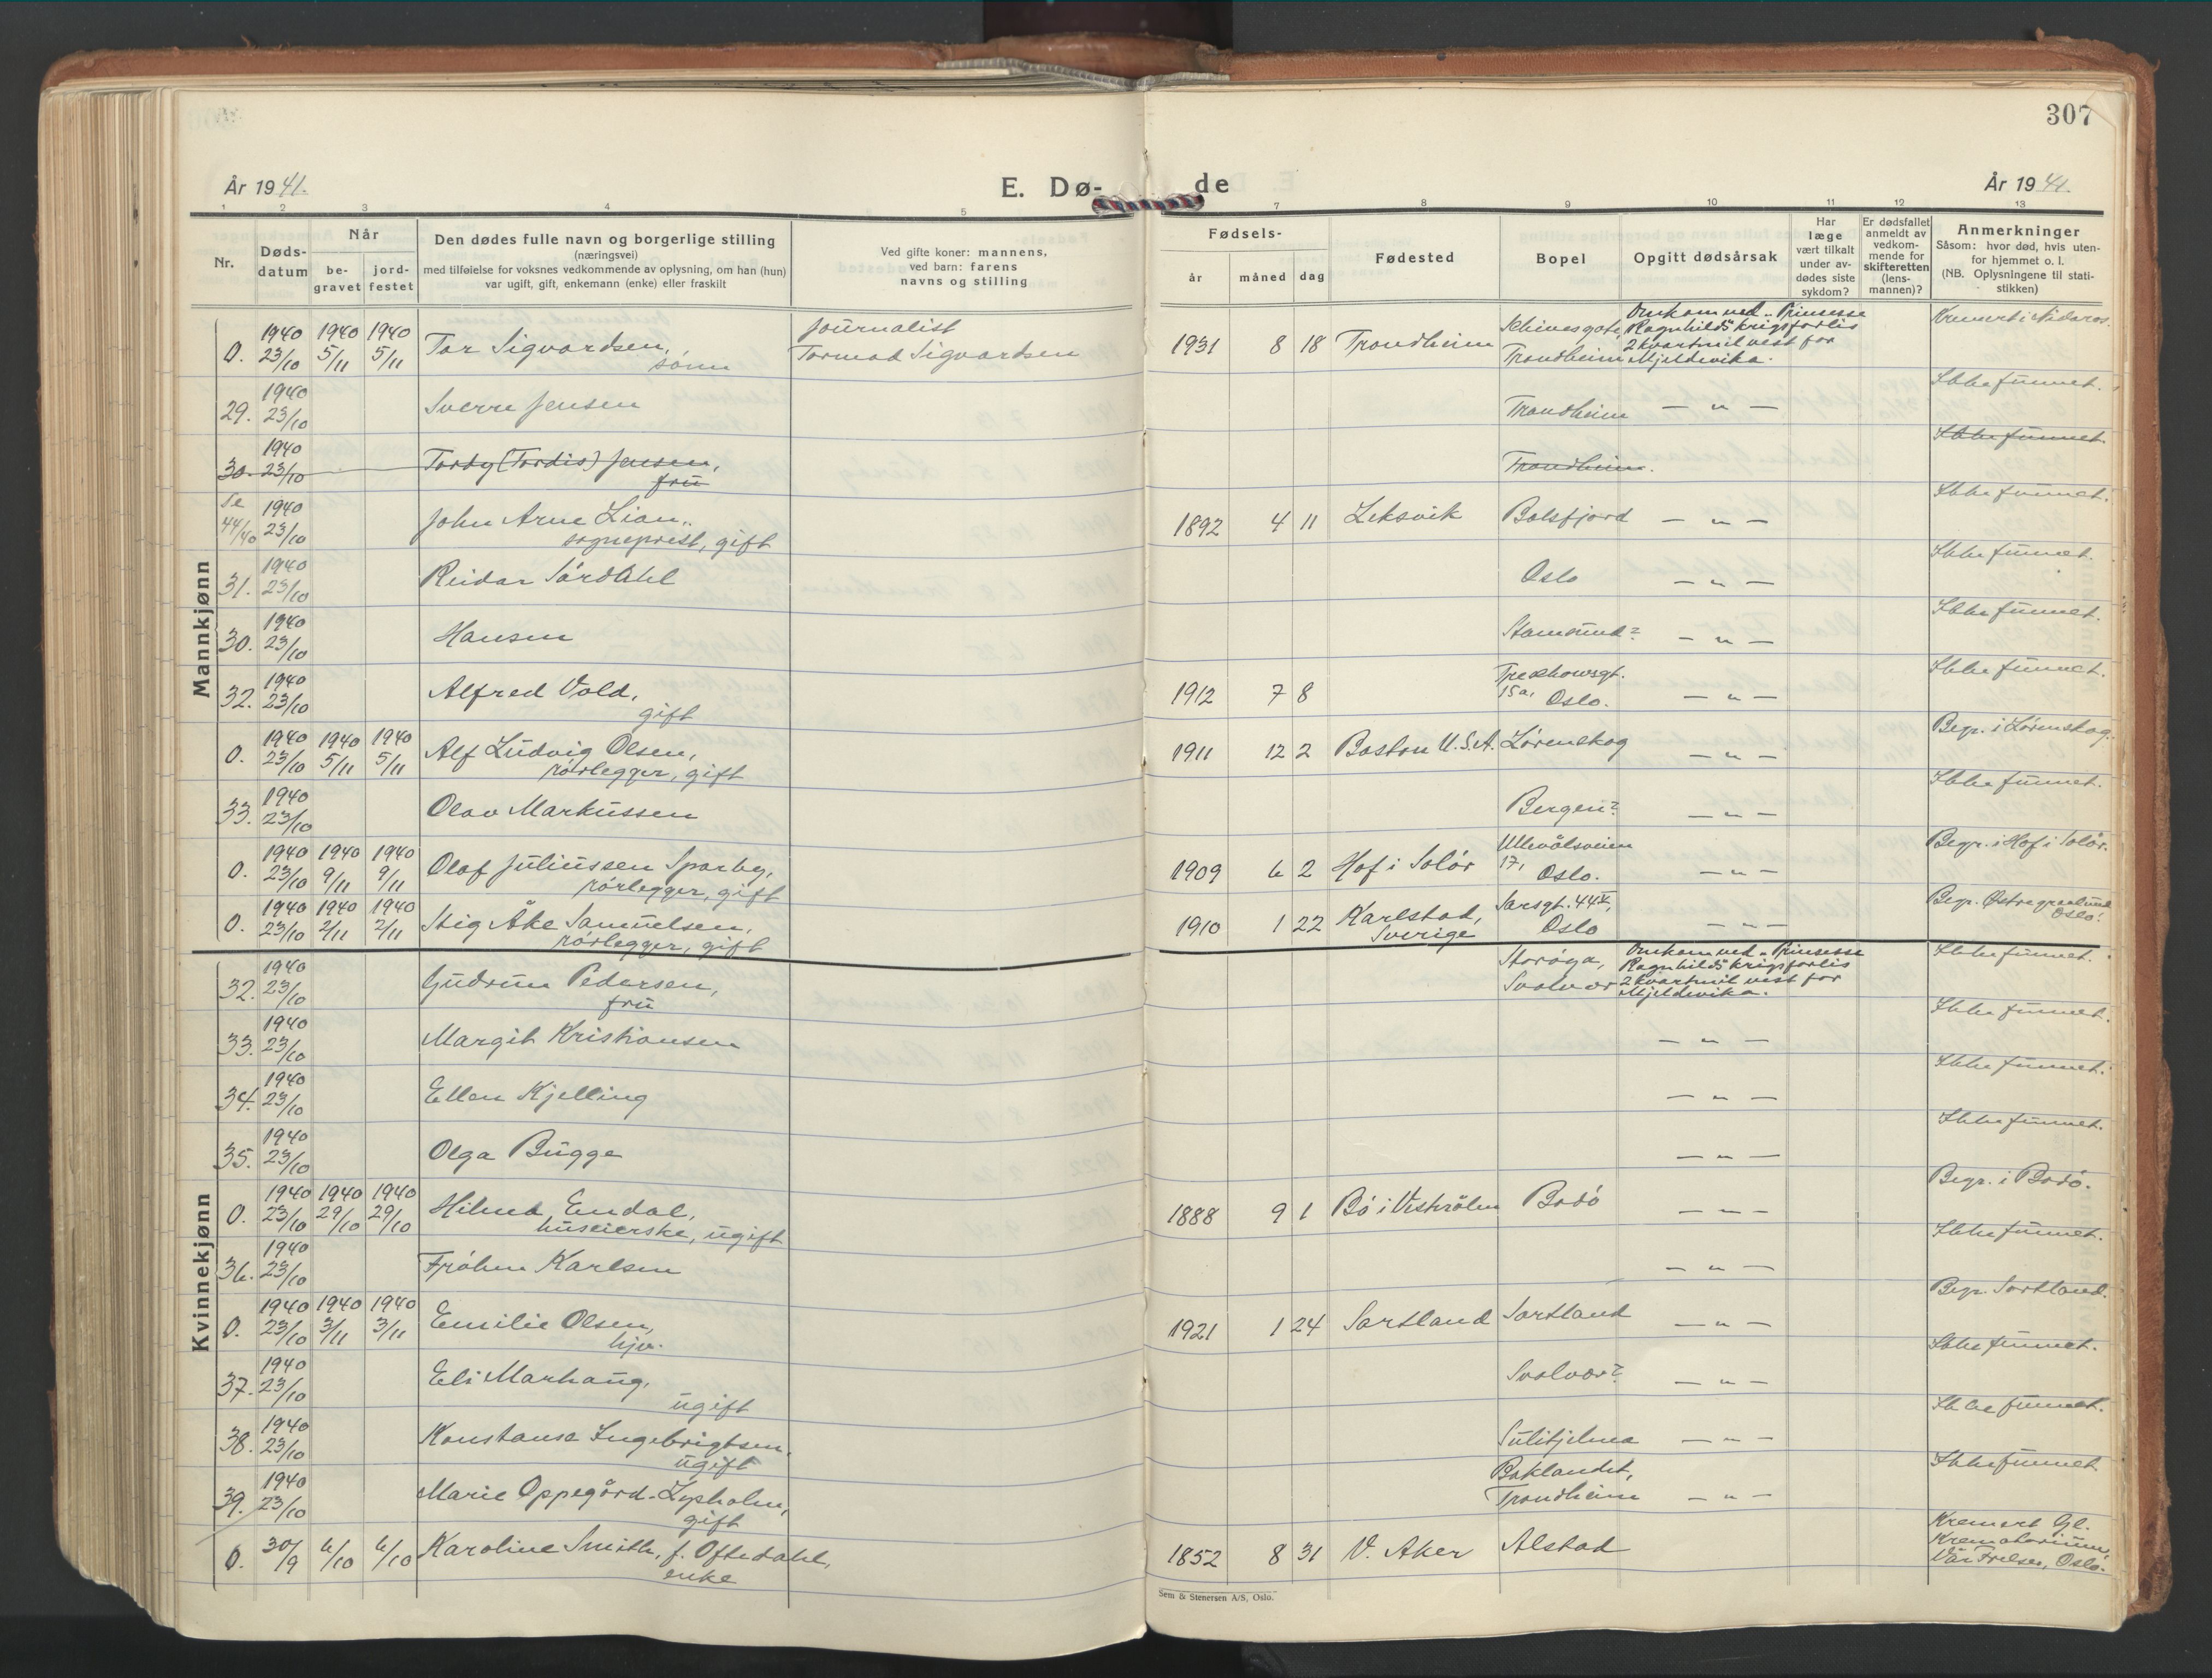 307
År 1941.
E. Dø-
de
År 1941.
1 2 3 4 5 7 8 9 10 11 12 13
Nr.
Døds-
datum
Når
be-
gravet
jord-
festet
Den dødes fulle navn og borgerlige stilling
(næringsvei)
med tilføielse for voksnes vedkommende av oplysning, om han (hun)
var ugift, gift, enkemann (enke) eller fraskilt
Ved gifte koner: mannens,
ved barn: farens
navns og stilling
Fødsels-
år måned dag
Fødested
Bopel
Opgitt dødsårsak
Har
læge
vært tilkalt
under av-
dødes siste
sykdom?
Er dødsfallet
anmeldt av
vedkom-
mende for
skifteretten
(lens-
mannen)?
Anmerkninger
Såsom: hvor død, hvis uten-
for hjemmet o. l.
(NB. Oplysningene til stati-
stikken)
Mannkjønn
0. 1940 23/10 1940 5/11 1940 5/11 Tor Sigvardsen, sönn Journalist Tormod Sigvardsen 1931 8 18 Trondheim Schivesgate, Trondheim Omkom ved "Prinsesse Ragnhild"s krigsforlis 2 kvartmil vest for Mjeldevika. Kremert i Nidaros.
29. 1940 23/10 Sverre Jensen Trondheim — " — Ikke funnet.
30. 1940 23/10 Tordy (Tordis) Jensen, frü Trondheim. Ikke funnet.
Se 44/40 1940 23/10 John Arne Lian, sogneprest, gift 1892 4 11 Leksvik Balsfjord — " — Ikke funnet.
31. 1940 23/10 Reidar Sördahl Oslo — " — Ikke funnet.
30. 1940 23/10 Hansen Stamsund? — " — Ikke funnet.
32. 1940 23/10 Alfred Vold, gift 1912 7 8 15a, Oslo. — " — Ikke funnet.
0. 1940 23/10 1940 5/11 1940 5/11 Alf Ludvig Olsen, rörlegger, gift 1911 12 2 Boston U.S.A. Lörenskog — " — Begr. i Lörenskog.
33. 1940 23/10 Olav Markussen Bergen? — " — Ikke funnet.
0. 1940 23/10 1940 9/11 1940 9/11 Olaf Juliussen Sparby, rörlegger, gift 1909 6 2 Hof i Solör Ullevålsveien 17, Oslo. — " — Begr. i Hof i Solör.
0. 1940 23/10 1940 2/11 1940 2/11 Stig Åke Samuelsen, rörlegger, gift 1910 1 22 Karlstad, Sverige Sarsgt. 44 Oslo — " — Begr. Østre gravlund Oslo.
Kvinnekjønn
32. 1940 23/10 Gudrun Pedersen, frü Storöya, Svolvær Omkom ved "Prinsesse Ragnhild"s krigsforlis 2 kvartmil vest for Mjeldevika. Ikke funnet.
33. 1940 23/10 Margit Kristiansen — " — Ikke funnet.
34. 1940 23/10 Ellen Kjelling — " — Ikke funnet.
35. 1940 23/10 Olga Bugge — " — Ikke funnet.
0. 1940 23/10 1940 29/10 1940 29/10 Hilma Endal, huseierske, ugift 1888 9 1 Bö i Vesterålen Bodö — " — Begr. i Bodö.
36. 1940 23/10 Fröken Karlsen — " — Ikke funnet.
0. 1940 23/10 1940 3/11 1940 3/11 Emilie Olsen, hjv. 1921 1 24 Sortland Sortland — " — Begr. Sortland.
37. 1940 23/10 Eli Marhaug, ugift Svolvær? — " — Ikke funnet.
38. 1940 23/10 Konstanse Ingebrigtsen, ugift Sulitjelma — " — Ikke funnet.
39. 1940 23/10 Marie Oppegård-Lysholm, gift Baklandet, Trondheim — " — Ikke funnet
0. 30/9 6/10 6/10 Karoline Smith, f. Oftedahl, enke 1852 8 31 V. Aker Alstad Kremert Gl. Krematorium, Vår Frelser, Oslo.
Sem & Stenersen A/S, Oslo.